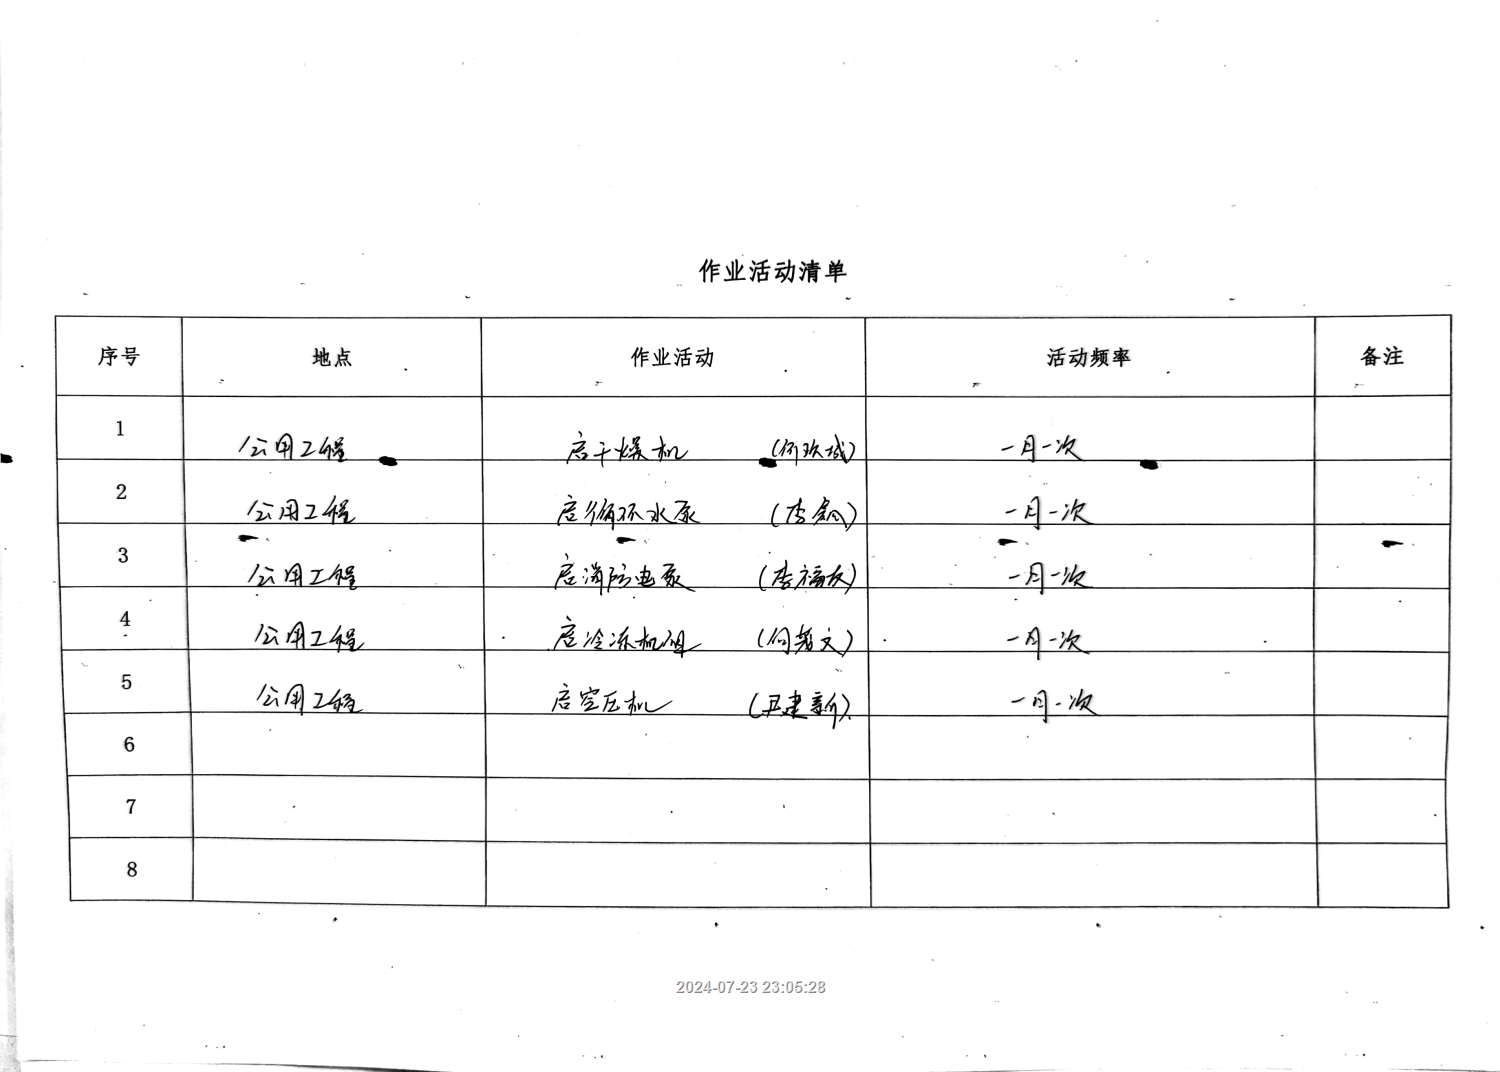 作业活动清单
序号 地点 作业活动 活动频率 备注
1 公用工程 启干燥机 一月一次
2 公用工程 启循环水泵 一月一次
3 公用工程 启消防电泵 (李福友) 一月一次
4 公用工程 启冷冻机组 一月一次
5 公用工程 启空压机 (尹建新) 一月一次
6
7
8
2024-07-23 23:05:28